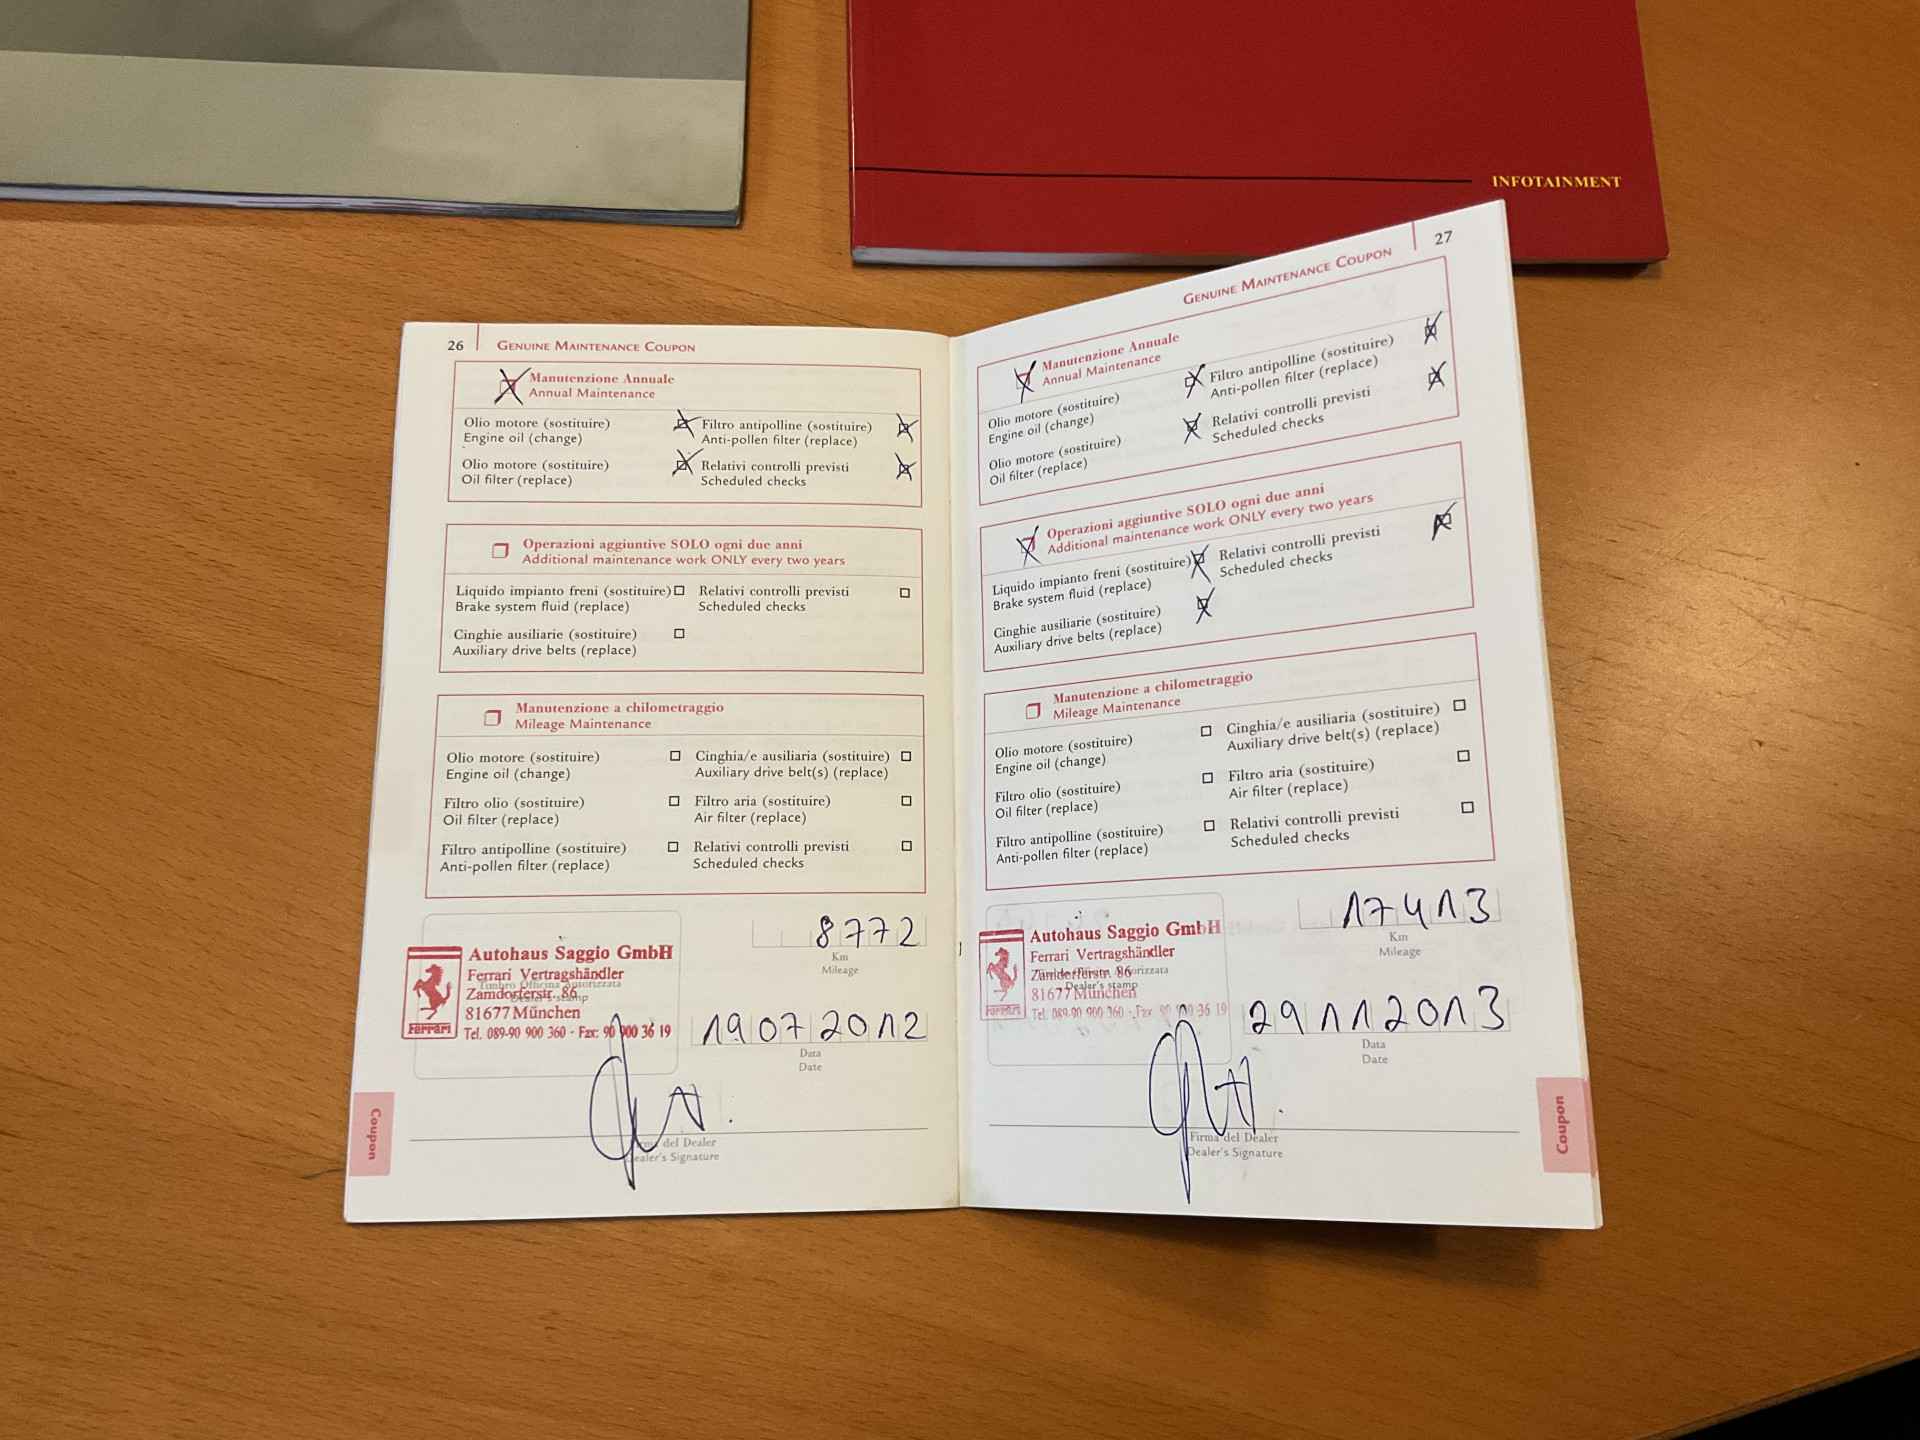 INFOTAINMENT
26
GENUINE MAINTENANCE COUPON
Manutenzione Annuale
Annual Maintenance
Olio motore (sostituire)
Engine oil (change)
Filtro antipolline (sostituire)
Anti-pollen filter (replace)
Olio motore (sostituire)
Oil filter (replace)
Relativi controlli previsti
Scheduled checks
Operazioni aggiuntive SOLO ogni due anni
Additional maintenance work ONLY every two years
Liquido impianto freni (sostituire)
Brake system fluid (replace)
Relativi controlli previsti
Scheduled checks
Cinghie ausiliarie (sostituire)
Auxiliary drive belts (replace)
Manutenzione a chilometraggio
Mileage Maintenance
Olio motore (sostituire)
Engine oil (change)
Cinghia/e ausiliaria (sostituire)
Auxiliary drive belt(s) (replace)
Filtro olio (sostituire)
Oil filter (replace)
Filtro aria (sostituire)
Air filter (replace)
Filtro antipolline (sostituire)
Anti-pollen filter (replace)
Relativi controlli previsti
Scheduled checks
8772
Km
Mileage
Autohaus Saggio GmbH
Ferrari Vertragshändler
Timbro Officina Autorizzata
Zamdorferstr. 86
Dealer's stamp
81677 München
Tel. 089-90 900 360 - Fax: 90 900 36 19
Ferrari
19072012
Data
Date
Firma del Dealer
Dealer's Signature
Coupon
27
GENUINE MAINTENANCE COUPON
Manutenzione Annuale
Annual Maintenance
Olio motore (sostituire)
Engine oil (change)
Filtro antipolline (sostituire)
Anti-pollen filter (replace)
Olio motore (sostituire)
Oil filter (replace)
Relativi controlli previsti
Scheduled checks
Operazioni aggiuntive SOLO ogni due anni
Additional maintenance work ONLY every two years
Liquido impianto freni (sostituire)
Brake system fluid (replace)
Relativi controlli previsti
Scheduled checks
Cinghie ausiliarie (sostituire)
Auxiliary drive belts (replace)
Manutenzione a chilometraggio
Mileage Maintenance
Olio motore (sostituire)
Engine oil (change)
Cinghia/e ausiliaria (sostituire)
Auxiliary drive belt(s) (replace)
Filtro olio (sostituire)
Oil filter (replace)
Filtro aria (sostituire)
Air filter (replace)
Filtro antipolline (sostituire)
Anti-pollen filter (replace)
Relativi controlli previsti
Scheduled checks
17413
Km
Mileage
Autohaus Saggio GmbH
Ferrari Vertragshändler
Timbro Officina Autorizzata
Zamdorferstr. 86
Dealer's stamp
81677 München
Tel. 089-90 900 360 - Fax 90 900 36 19
Ferrari
29112013
Data
Date
Firma del Dealer
Dealer's Signature
Coupon